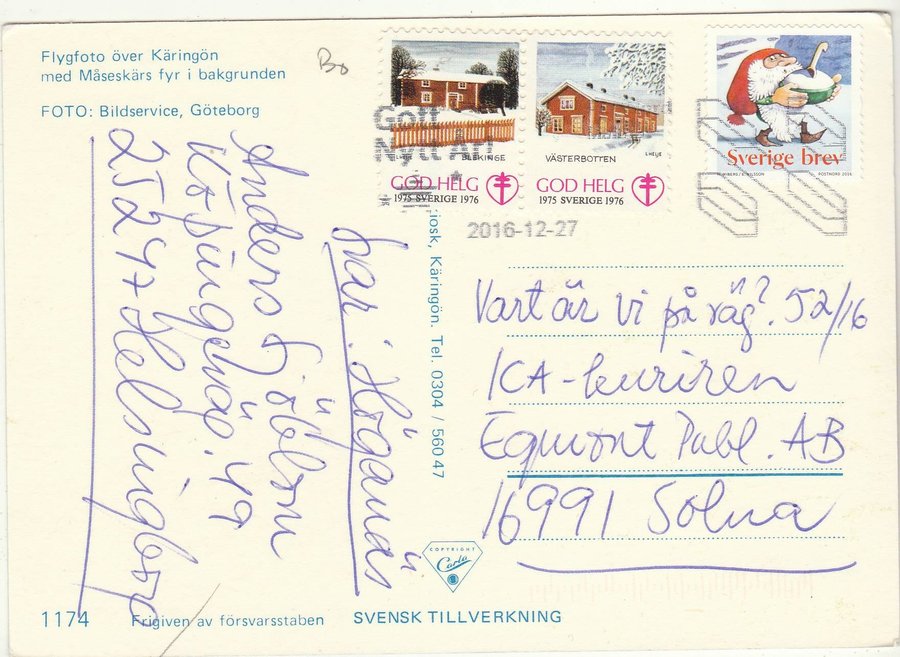 Flygfoto över Käringön
med Måseskärs fyr i bakgrunden
FOTO: Bildservice, Göteborg
Bo
BLEKINGE
GOD HELG
1975 SVERIGE 1976
VÄSTERBOTTEN
L HELJE
GOD HELG
1975 SVERIGE 1976
Sverige brev
POSTNORD 2016
Gott
Nytt År!
2016-12-27
Vart är vi på väg? 52/16
ICA-kuriren
Egmont Publ. AB
16991 Solna
iosk, Käringön. Tel. 0304 / 560 47
Svar: Höganäs
Anders
49
252 47 Helsingborg
COPYRIGHT
Carla
1174
Frigiven av försvarsstaben
SVENSK TILLVERKNING